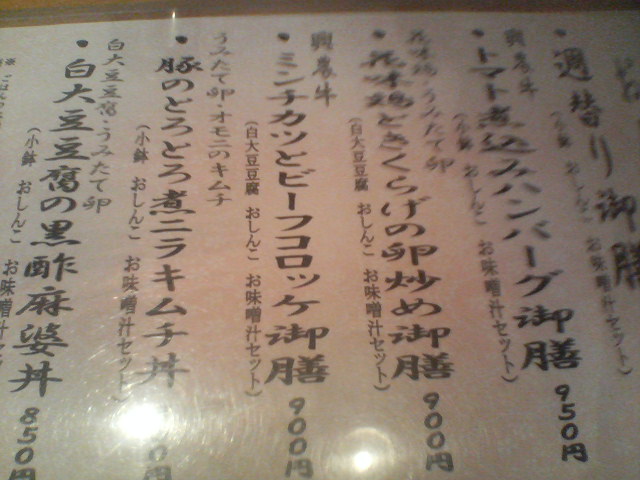 週替り御膳
（小鉢 おしんこ お味噌汁セット）
興農牛
・トマト煮込みハンバーグ御膳 950円
（小鉢 おしんこ お味噌汁セット）
花味鶏・うみたて卵
・花味鶏ときくらげの卵炒め御膳 900円
（白大豆豆腐 おしんこ お味噌汁セット）
興農牛
・ミンチカツとビーフコロッケ御膳 900円
（白大豆豆腐 おしんこ お味噌汁セット）
うみたて卵・オモニのキムチ
・豚のとろとろ煮ニラキムチ丼
（小鉢 おしんこ お味噌汁セット）
白大豆豆腐・うみたて卵
・白大豆豆腐の黒酢麻婆丼 850円
（小鉢 おしんこ お味噌汁